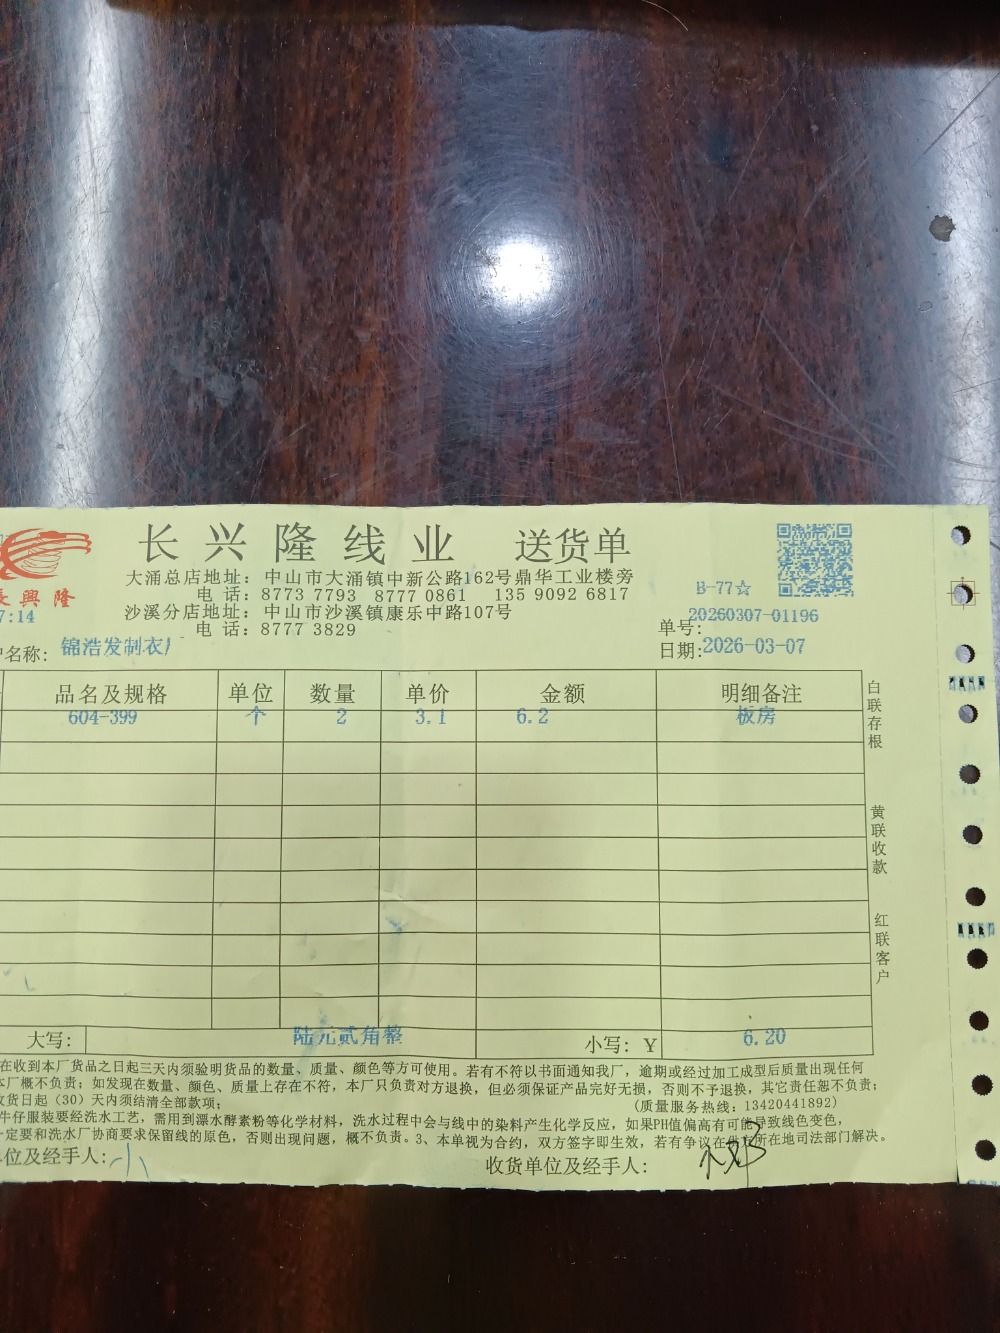 长兴隆线业 送货单
長興隆
大涌总店地址：中山市大涌镇中新公路162号鼎华工业楼旁
电 话：8773 7793 8777 0861 135 9092 6817
沙溪分店地址：中山市沙溪镇康乐中路107号
电 话：8777 3829
7:14
B-77☆
单号：20260307-01196
名称：锦浩发制衣厂
日期：2026-03-07
品名及规格 单位 数量 单价 金额 明细备注
604-399 个 2 3.1 6.2 板房
白联存根
黄联收款
红联客户
大写：陆元贰角整 小写：Y 6.20
在收到本厂货品之日起三天内须验明货品的数量、质量、颜色等方可使用。若有不符以书面通知我厂，逾期或经过加工成型后质量出现任何
厂概不负责；如发现在数量、颜色、质量上存在不符，本厂只负责对方退换，但必须保证产品完好无损，否则不予退换，其它责任恕不负责；
货日起（30）天内须结清全部款项；
(质量服务热线：13420441892)
牛仔服装要经洗水工艺，需用到漂水酵素粉等化学材料，洗水过程中会与线中的染料产生化学反应，如果PH值偏高有可能导致线色变色，
定要和洗水厂协商要求保留线的原色，否则出现问题，概不负责。3、本单视为合约，双方签字即生效，若有争议在供方所在地司法部门解决。
位及经手人：小 收货单位及经手人：